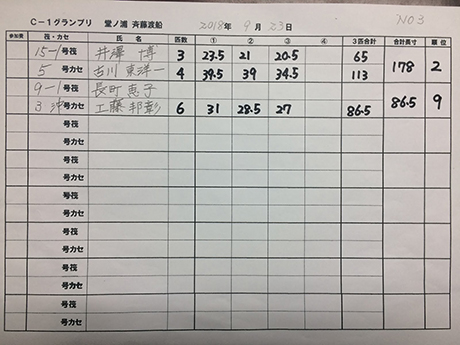 C－1グランプリ 堂ノ浦 斉藤渡船 2018年 9月 23日 NO3
参加費 筏・カセ 氏名 匹数 ① ② ③ ④ 3匹合計 合計長寸 順位
15-1号筏 井澤 博 3 23.5 21 20.5 65 178 2
5号カセ 古川 東洋一 4 39.5 39 34.5 113
9-1号筏 長町 恵子 86.5 9
3沖号カセ 工藤 邦彰 6 31 28.5 27 86.5
号筏
号カセ
号筏
号カセ
号筏
号カセ
号筏
号カセ
号筏
号カセ
号筏
号カセ
号筏
号カセ